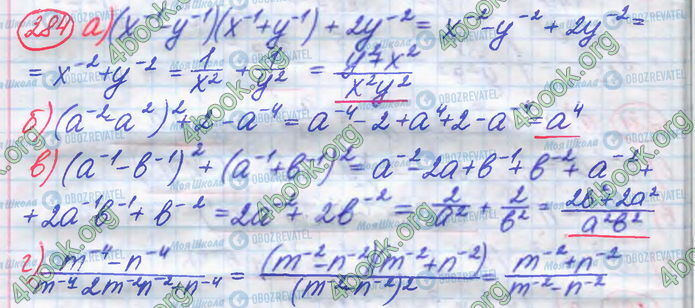 284 а) (x⁻¹-y⁻¹)(x⁻¹+y⁻¹) + 2y⁻² = x⁻²-y⁻²+2y⁻² =
= x⁻²+y⁻² = 1/x² + 1/y² = y²+x²/x²y²
б) (a⁻² a²)²+2-a⁻⁴ = a⁻⁴-2+a⁴+2-a⁻⁴ = a⁴
в) (a⁻¹-в⁻¹)² + (a⁻¹+в⁻¹)² = a⁻²-2a+в⁻¹+в⁻²+a⁻²+
+2a⁻¹в⁻¹+в⁻² = 2a⁻²+2в⁻² = 2/a² + 2/в² = 2в²+2a²/a²в²
г) m⁻⁴-n⁻⁴/m⁻⁴ 2m⁻²n⁻²+n⁻⁴ = (m⁻²-n⁻²)(m⁻²+n⁻²)/(m⁻²-n⁻²)² = m⁻²+n⁻²/m⁻²-n⁻²